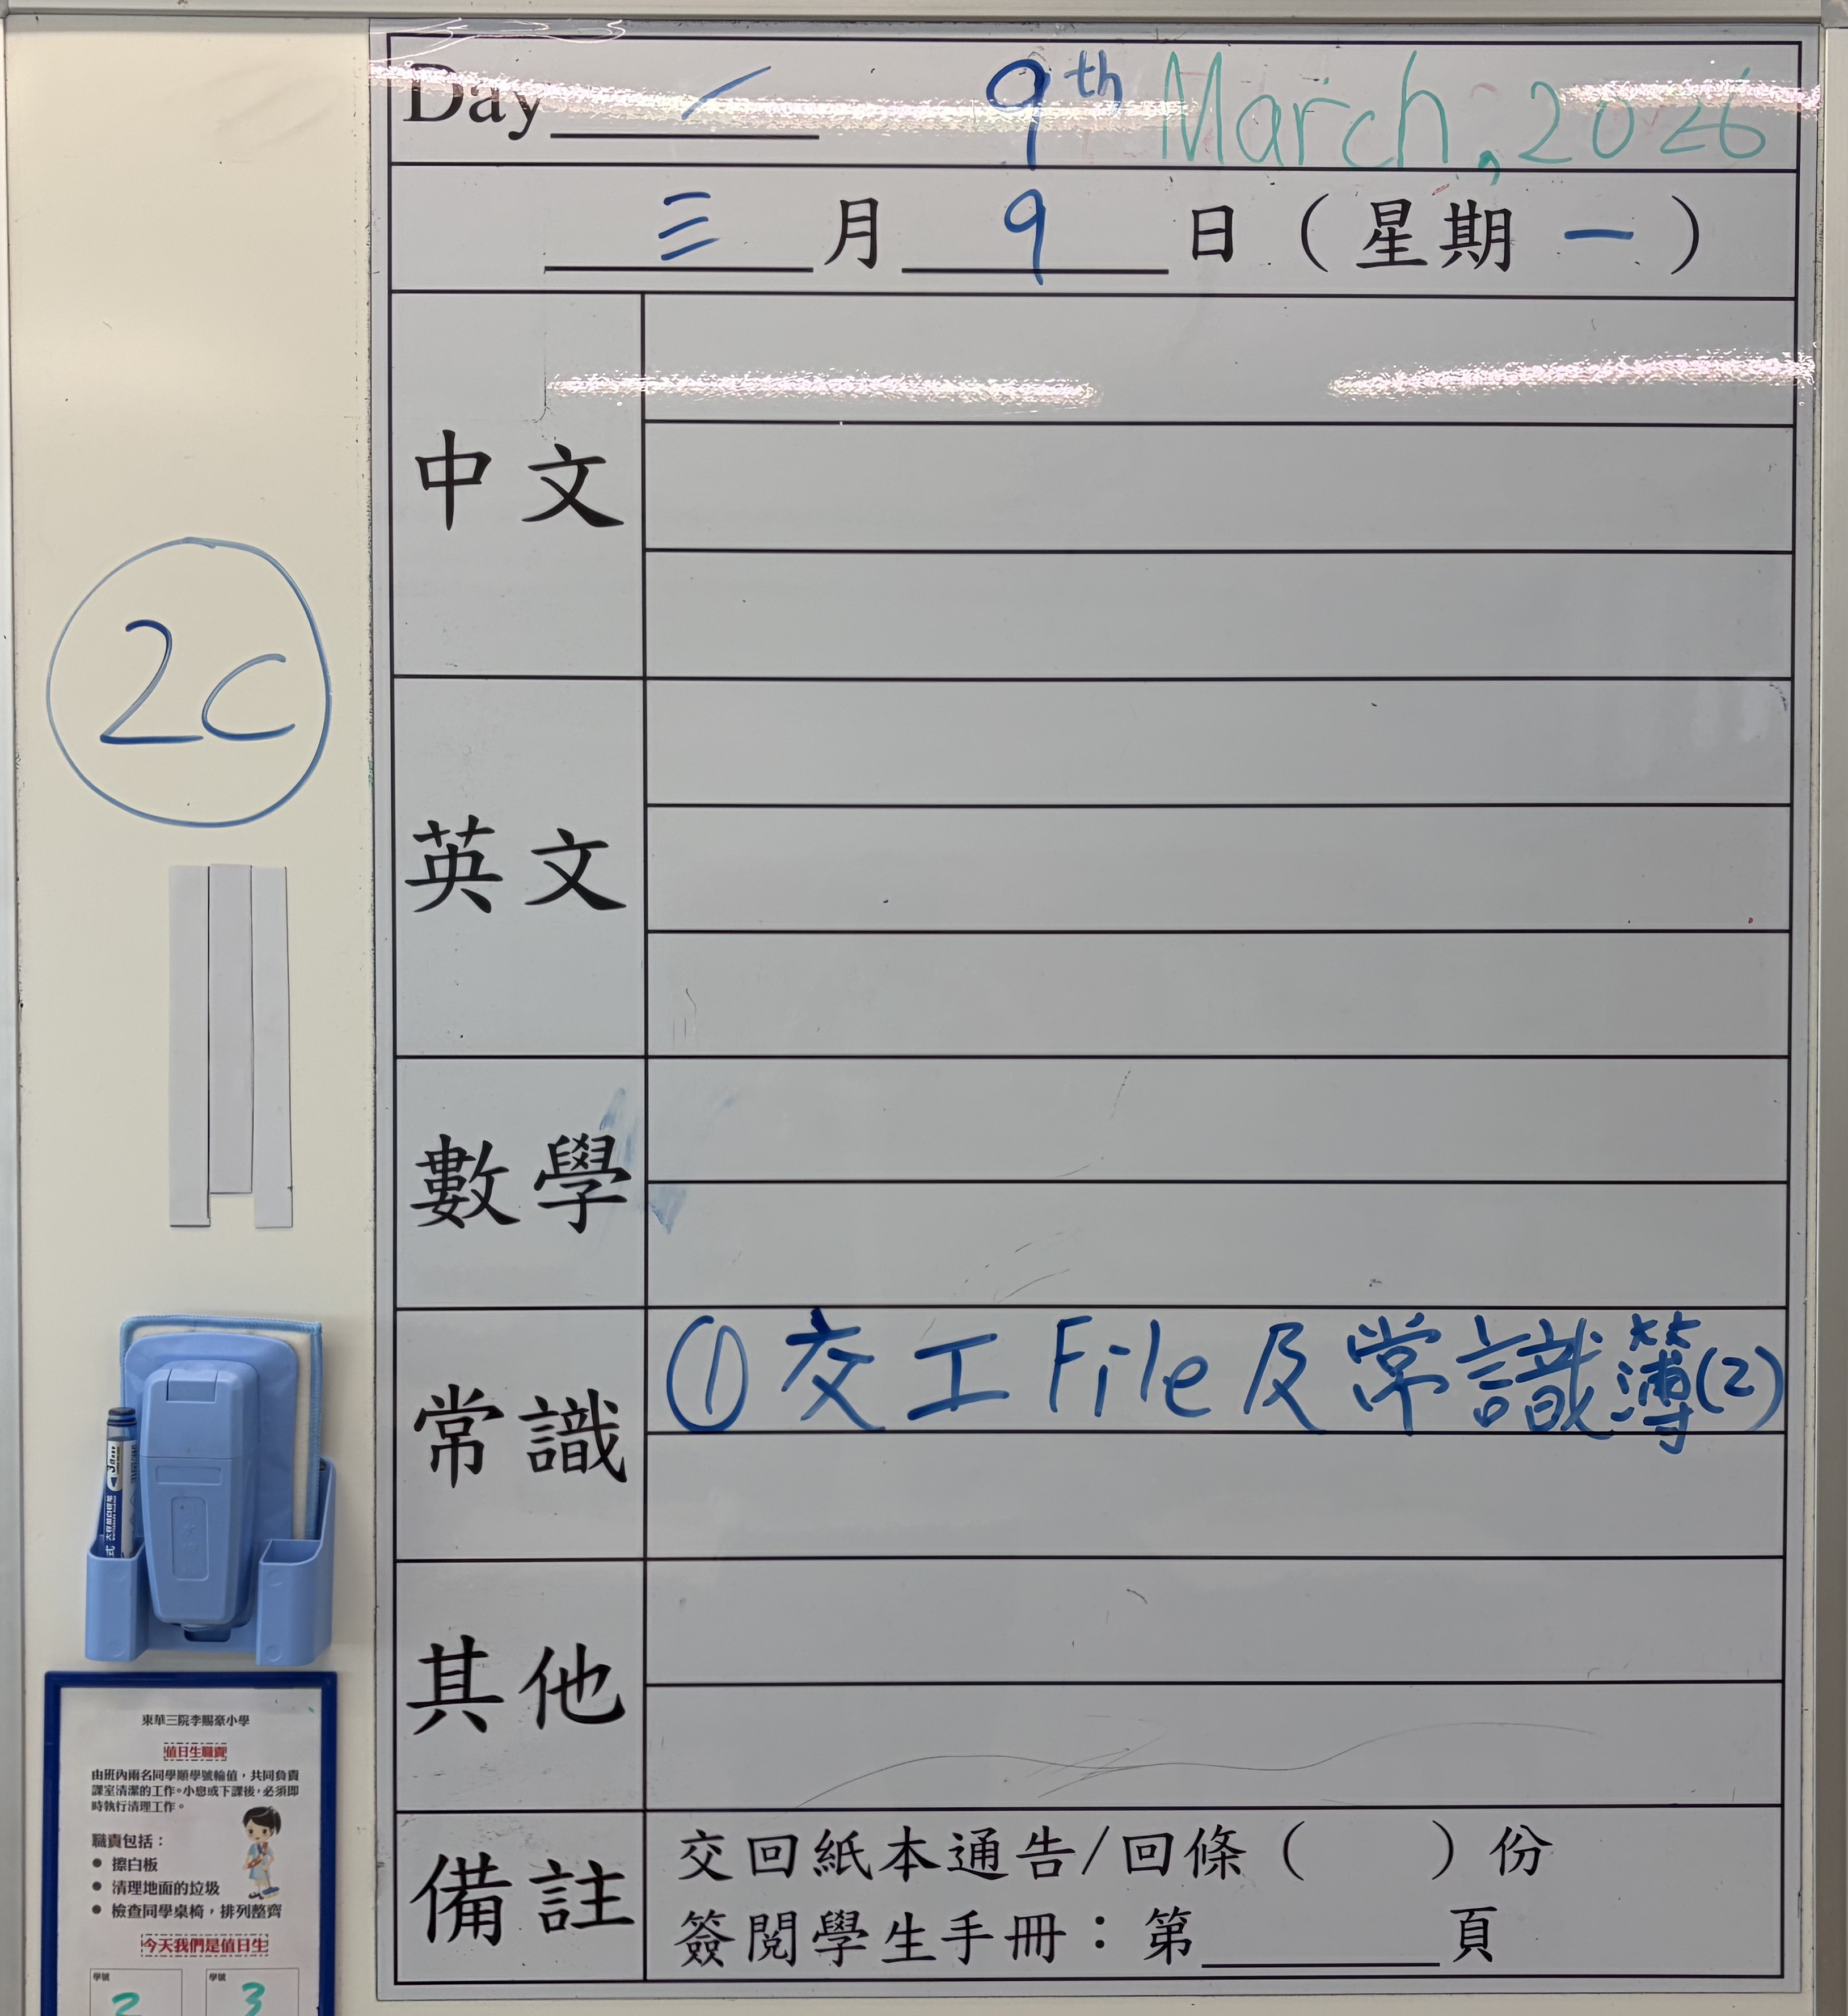 Day / 9th March, 2026
三 月 9 日（星期 一）
中文
英文
數學
常識
① 交工File及常識簿(2)
其他
備註
交回紙本通告/回條（　　）份
簽閱學生手冊：第＿＿＿頁
2C
東華三院李賜豪小學
值日生職責
由班內兩名同學順學號輪值，共同負責
課室清潔的工作。小息或下課後，必須即
時執行清理工作。
職責包括：
● 擦白板
● 清理地面的垃圾
● 檢查同學桌椅，排列整齊
今天我們是值日生
學號 學號
2 3